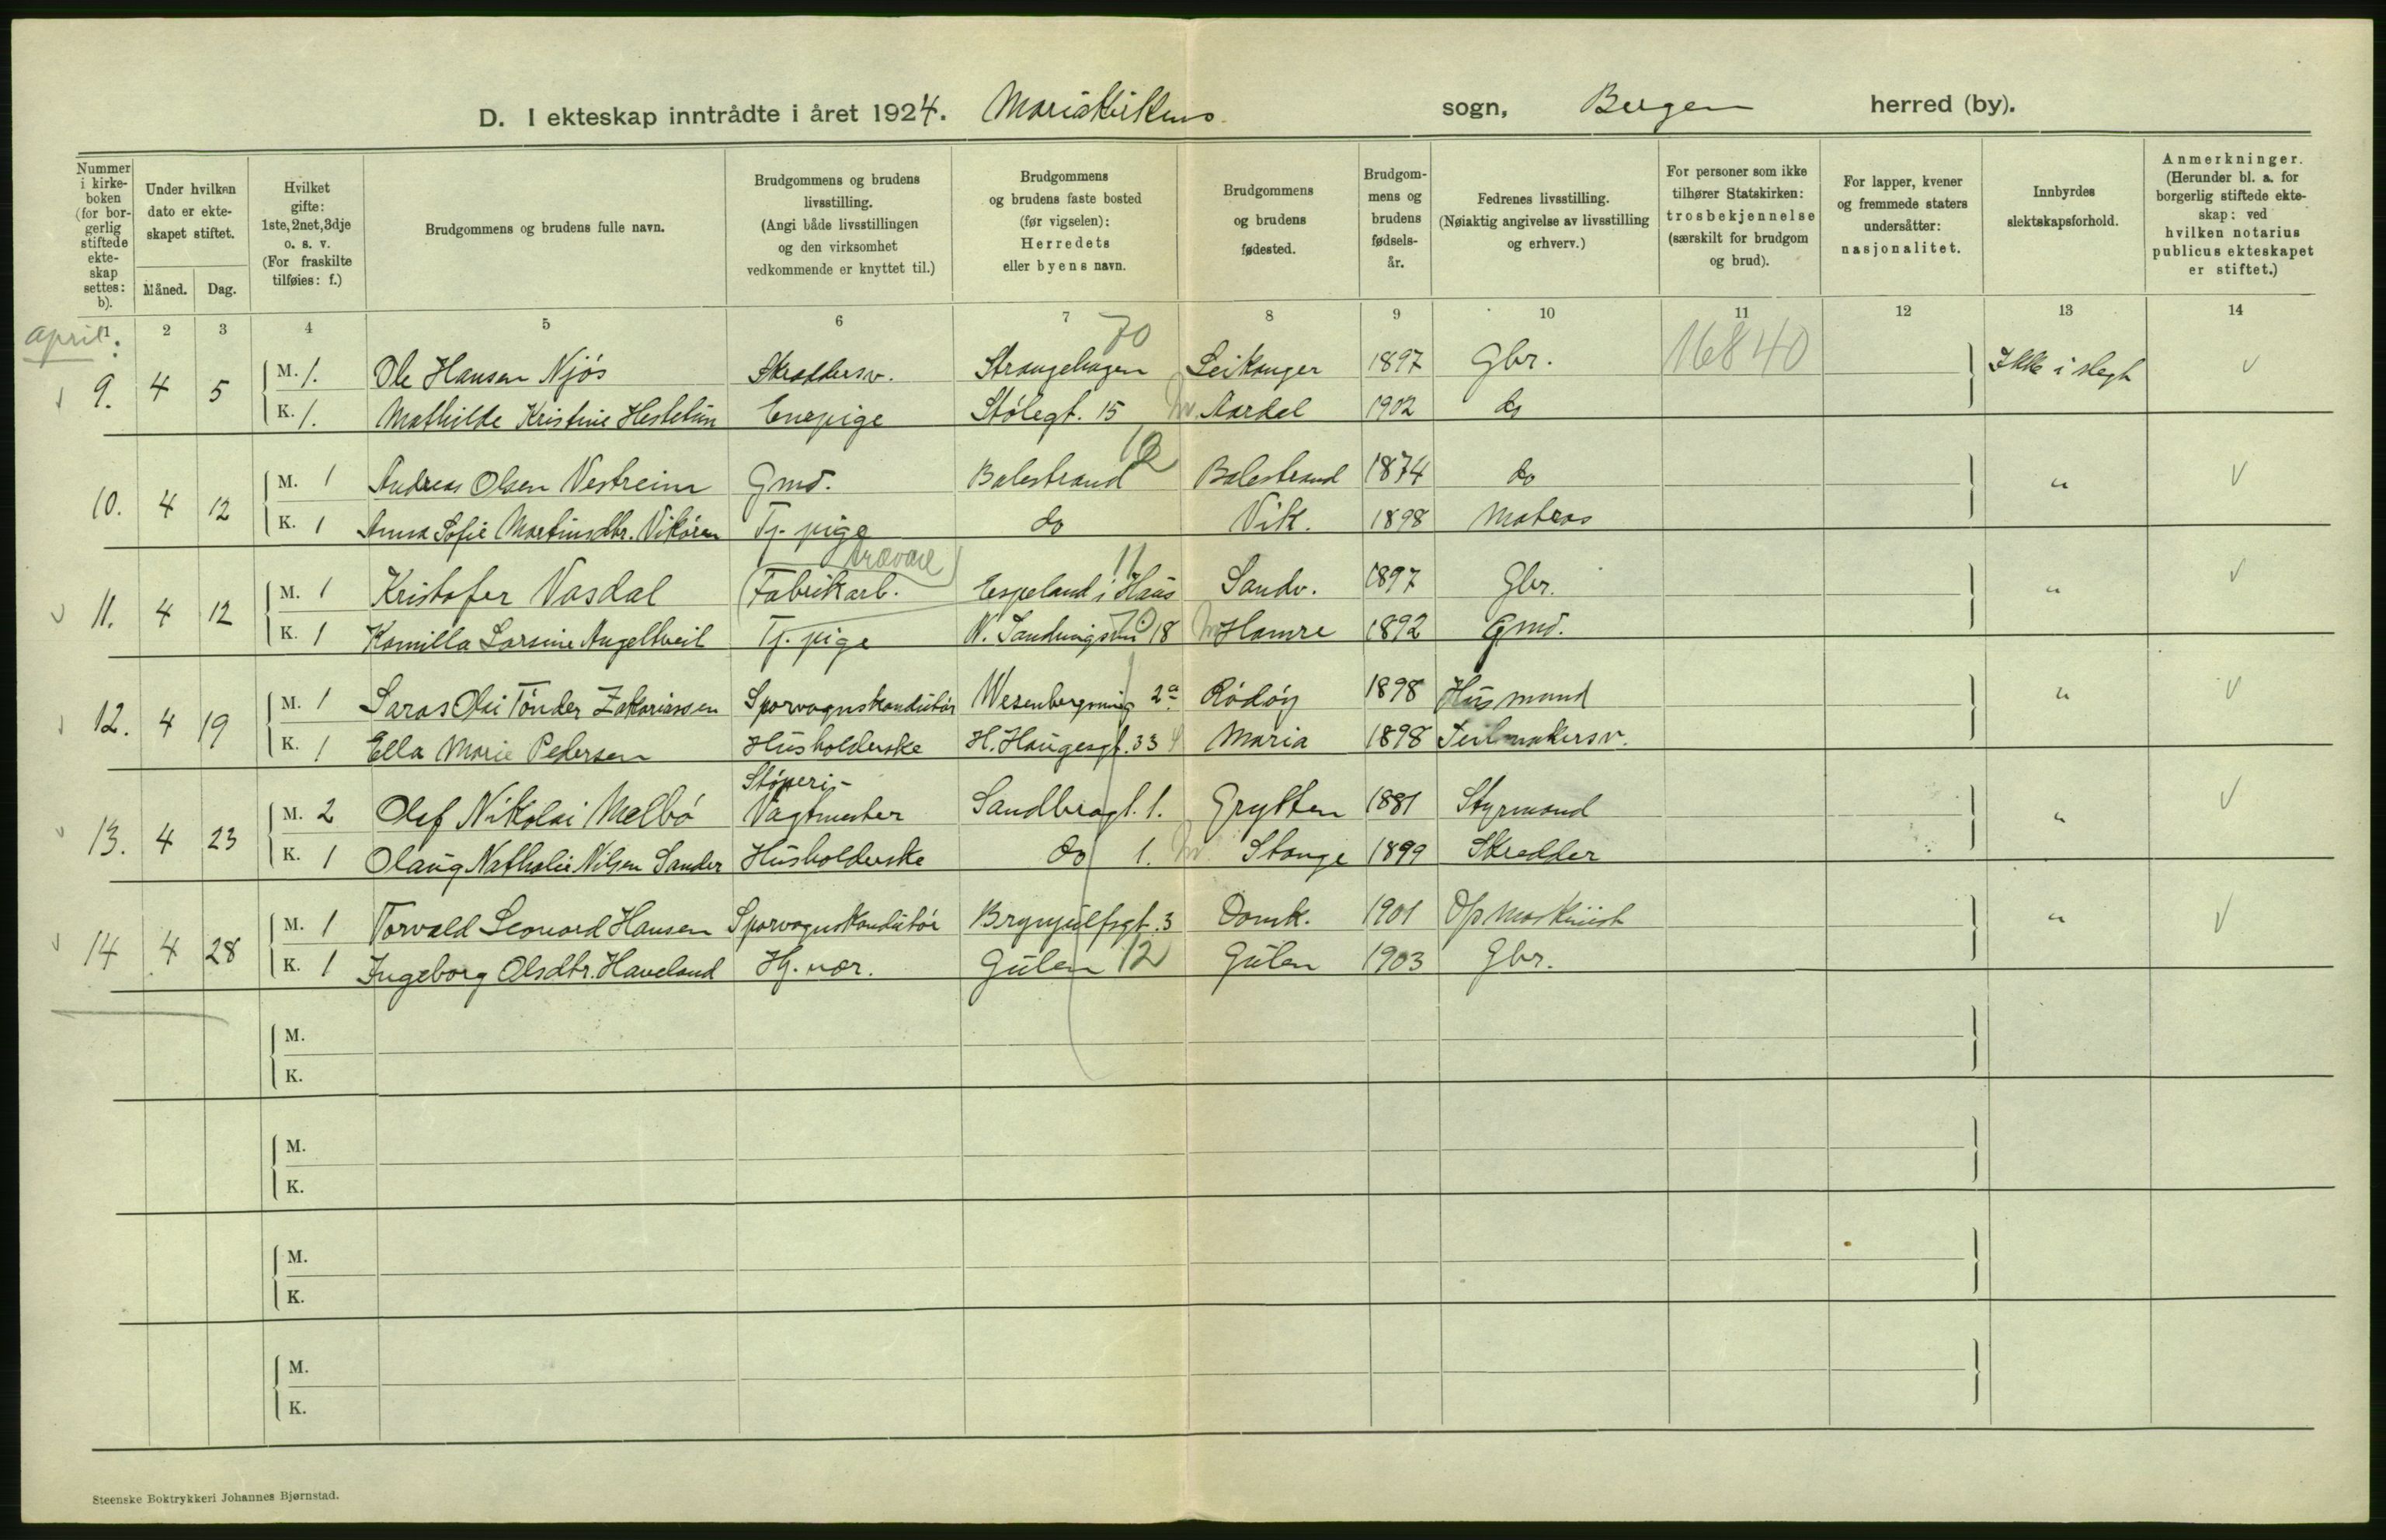 D. I ekteskap inntrådte i året 1924. Mariakirkens sogn, Bergen herred (by).
Nummer i kirke-boken (for bor-gerlig stiftede ekte-skap settes: b).
Under hvilken dato er ekte-skapet stiftet.
Måned.
Dag.
Hvilket gifte: 1ste, 2net, 3dje o. s. v. (For fraskilte tilføies: f.)
Brudgommens og brudens fulle navn.
Brudgommens og brudens livsstilling. (Angi både livsstillingen og den virksomhet vedkommende er knyttet til.)
Brudgommens og brudens faste bosted (før vigselen): Herredets eller byens navn.
Brudgommens og brudens fødested.
Brudgom-mens og brudens fødsels-år.
Fedrenes livsstilling. (Nøiaktig angivelse av livsstilling og erhverv.)
For personer som ikke tilhører Statskirken: trosbekjennelse (særskilt for brudgom og brud).
For lapper, kvener og fremmede staters undersåtter: nasjonalitet.
Innbyrdes slektskapsforhold.
Anmerkninger. (Herunder bl. a. for borgerlig stiftede ekte-skap: ved hvilken notarius publicus ekteskapet er stiftet.)
1 2 3 4 5 6 7 8 9 10 11 12 13 14
April. 70 16840
9. 4 5 M. 1. Ole Hansen Njøs Skræddersv. Strangehagen Leikanger 1897 Gbr. Ikke i slegt
K. 1. Mathilde Kristine Hestetun Enepige Stølegt. 15 Aardal 1902 do
12
10. 4 12 M. 1 Andreas Olsen Vestreim Gmd. Balestrand Balestrand 1874 do "
K. 1 Anna Sofie Martinsdtr. Vikøren Tj. pige do Vik. 1898 Matros
trævare 11
11. 4 12 M. 1 Kristofer Vasdal Fabrikarb. Espeland i Haus Sandv. 1897 Gbr. "
K. 1 Kamilla Larsine Angeltveit Tj. pige N. 18 Hamre 1892 Gmd.
12. 4 19 M. 1 Olai Tønder Zakariassen Sporvognskonduktør 2a Rødøy 1898 Husmand "
K. 1 Ella Marie Pedersen Husholderske H. Haugesgt. 33 Maria 1898 Seilmakersv.
Støperi-
13. 4 23 M. 2 Olef Nikolai Melbø Vagtmester Sandbrogt. 1. Grytten 1881 Styrmand "
K. 1 Olaug Nathalie Nilsen Sander Husholderske do 1. Stange 1899 Skredder
14 4 28 M. 1 Torvald Leonard Hansen Sporvognskonduktør Brynjulfsgt. 3 Domk. 1901 Op. Maskinist "
K. 1 Ingeborg Olsdtr. Haveland Hj. vær. Gulen 12 Gulen 1903 Gbr.
M.
K.
M.
K.
M.
K.
M.
K.
Steenske Boktrykkeri Johannes Bjørnstad.